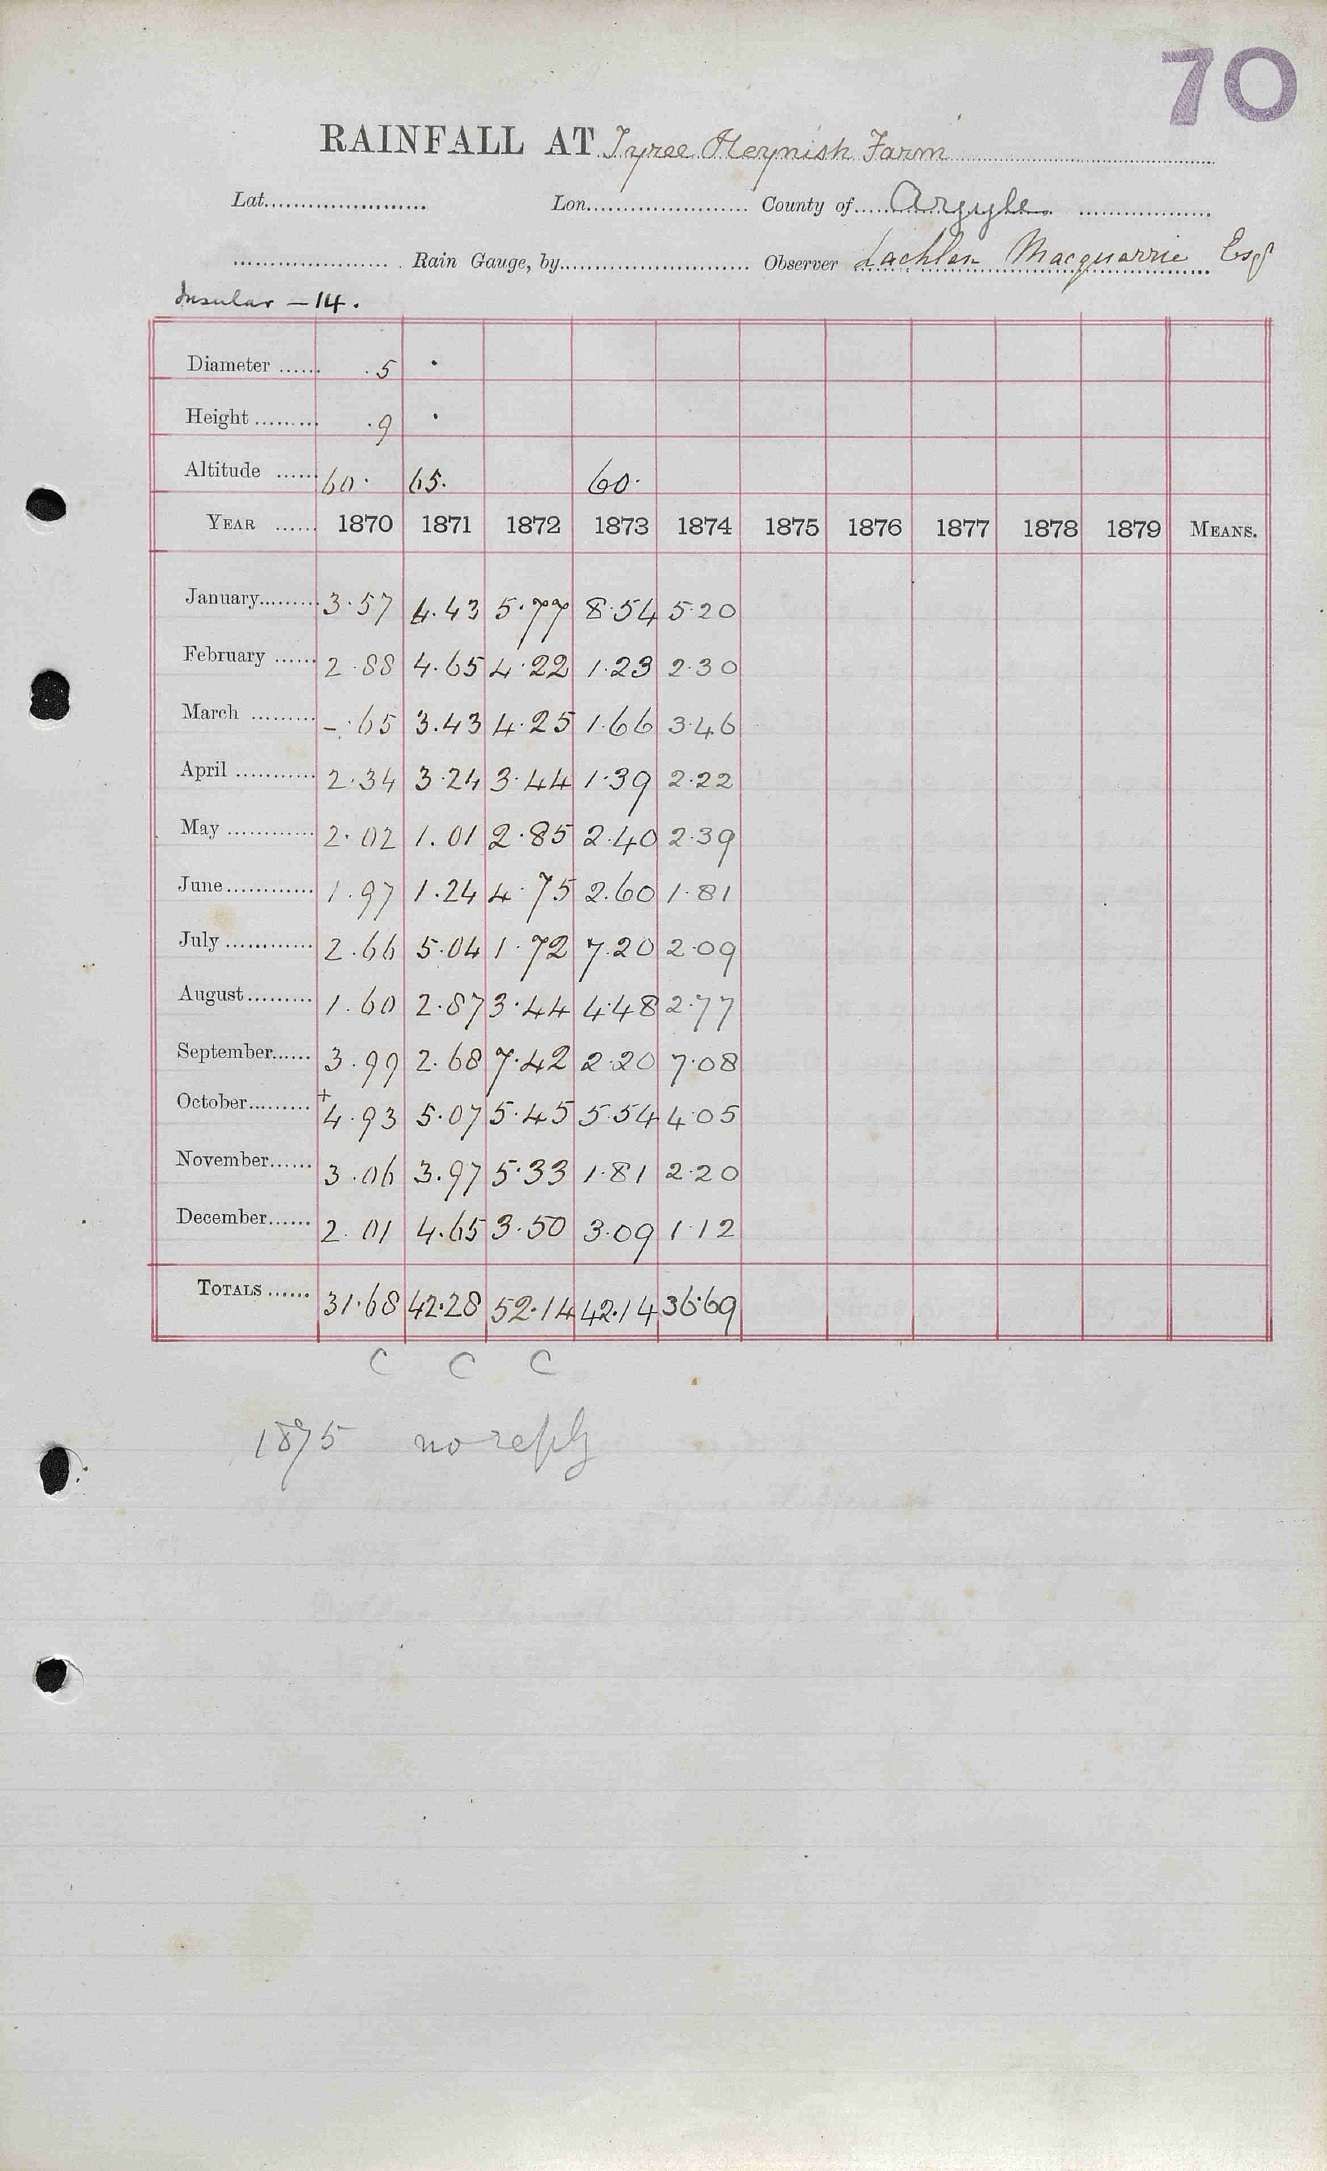 70
RAINFALL AT Tyree Heynish Farm
Lat...................... Lon...................... County of.... Argyle
...................... Rain Gauge, by......................... Observer Lachlan Macquarrie Esq
Insular - 14.
Diameter ...... .5 .
Height ......... .9 .
Altitude ...... 60. 65. 60.
YEAR ...... 1870 1871 1872 1873 1874 1875 1876 1877 1878 1879 MEANS.
January......... 3.57 4.43 5.77 8.54 5.20
February ...... 2.88 4.65 4.22 1.23 2.30
March ......... -.65 3.43 4.25 1.66 3.46
April ........... 2.34 3.24 3.44 1.39 2.22
May ............ 2.02 1.01 2.85 2.40 2.39
June............ 1.97 1.24 4.75 2.60 1.81
July ............ 2.66 5.04 1.72 7.20 2.09
August......... 1.60 2.87 3.44 4.48 2.77
September...... 3.99 2.68 7.42 2.20 7.08
October......... + 4.93 5.07 5.45 5.54 4.05
November...... 3.06 3.97 5.33 1.81 2.20
December...... 2.01 4.65 3.50 3.09 1.12
TOTALS ...... 31.68 42.28 52.14 42.14 36.69
C C C
1875 no reply